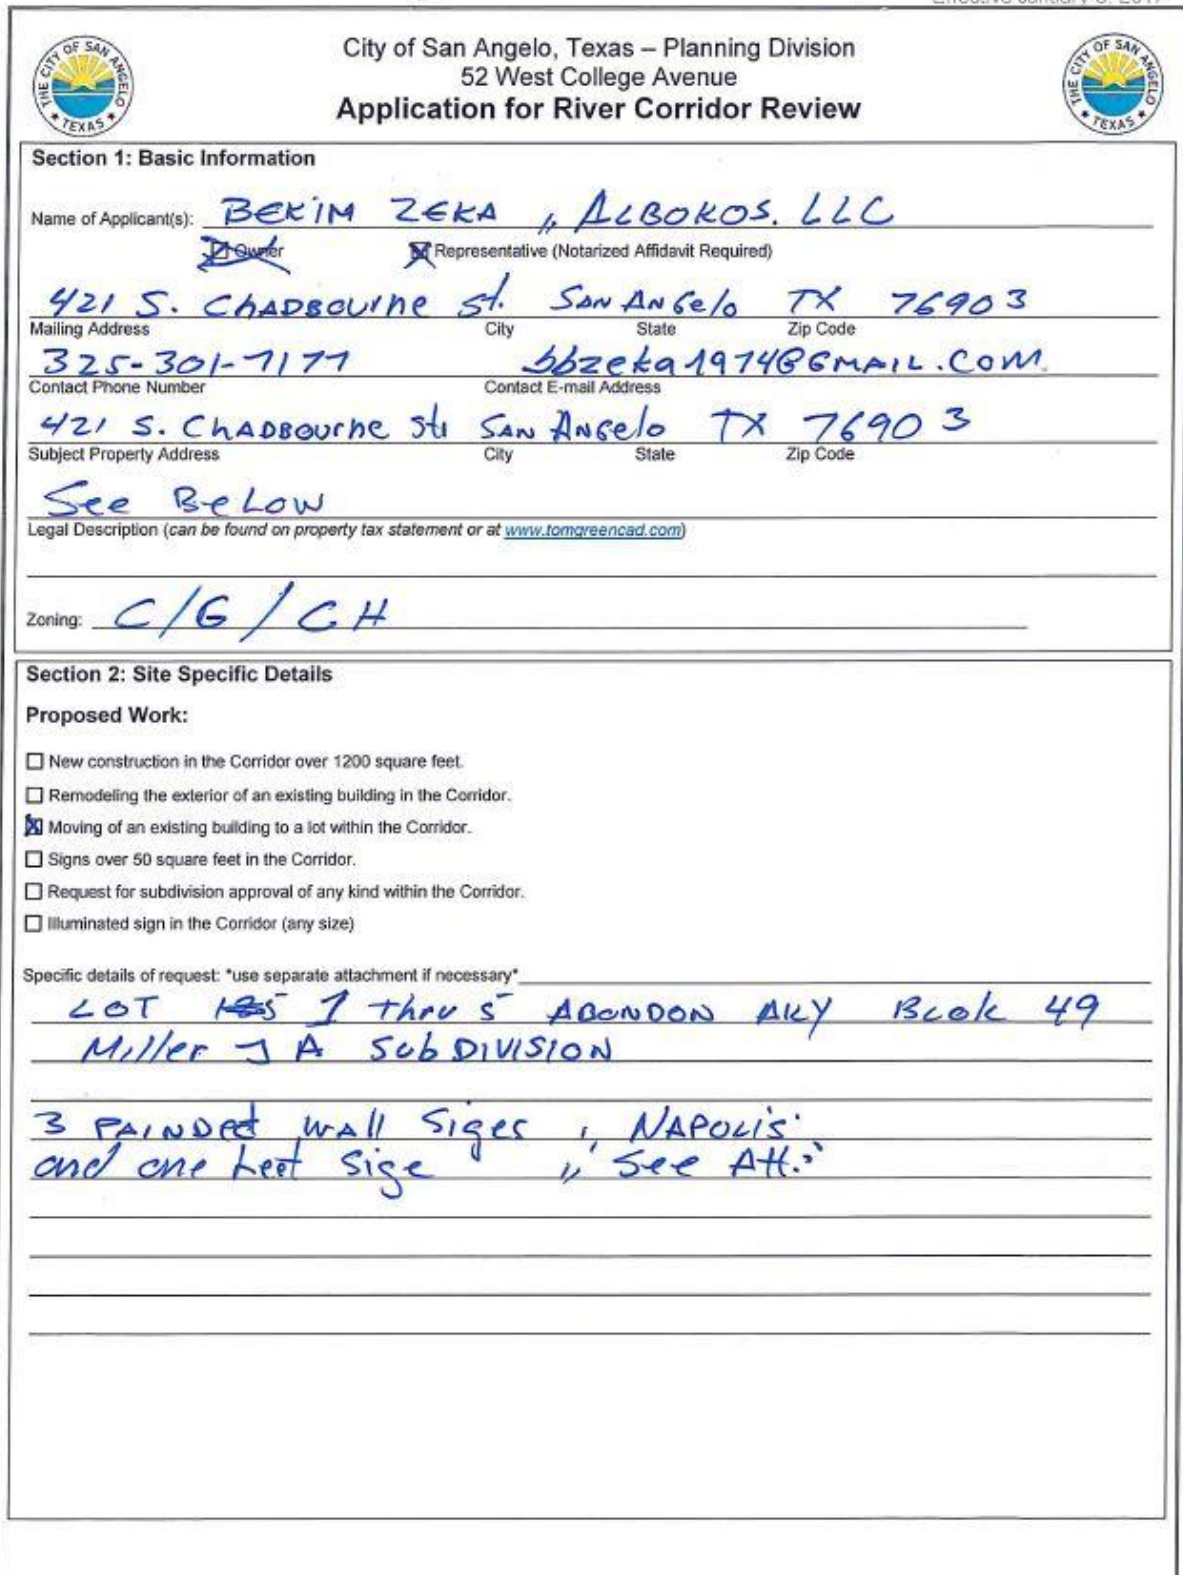 THE CITY OF SAN ANGELO
★ TEXAS ★
City of San Angelo, Texas – Planning Division
52 West College Avenue
Application for River Corridor Review
THE CITY OF SAN ANGELO
★ TEXAS ★
Section 1: Basic Information
Name of Applicant(s): BEKIM ZEKA ,, ALBOKOS. LLC
Owner Representative (Notarized Affidavit Required)
421 S. CHADBOurne St. SAN ANGelo TX 76903
Mailing Address City State Zip Code
325-301-7177 bbzeka1974@GMAIL.COM.
Contact Phone Number Contact E-mail Address
421 S. CHADBOurne St. SAN ANGelo TX 76903
Subject Property Address City State Zip Code
See BeLow
Legal Description (can be found on property tax statement or at www.tomgreencad.com)
Zoning: C/G/CH
Section 2: Site Specific Details
Proposed Work:
New construction in the Corridor over 1200 square feet.
Remodeling the exterior of an existing building in the Corridor.
Moving of an existing building to a lot within the Corridor.
Signs over 50 square feet in the Corridor.
Request for subdivision approval of any kind within the Corridor.
Illuminated sign in the Corridor (any size)
Specific details of request: *use separate attachment if necessary*
LOT 1 thru 5 ABONDON ALLY Blok 49
Miller J A SubDIVISION
3 PAINDed WALL Siges ,, NAPOLIS
and one Leet Sige ,, See Att."